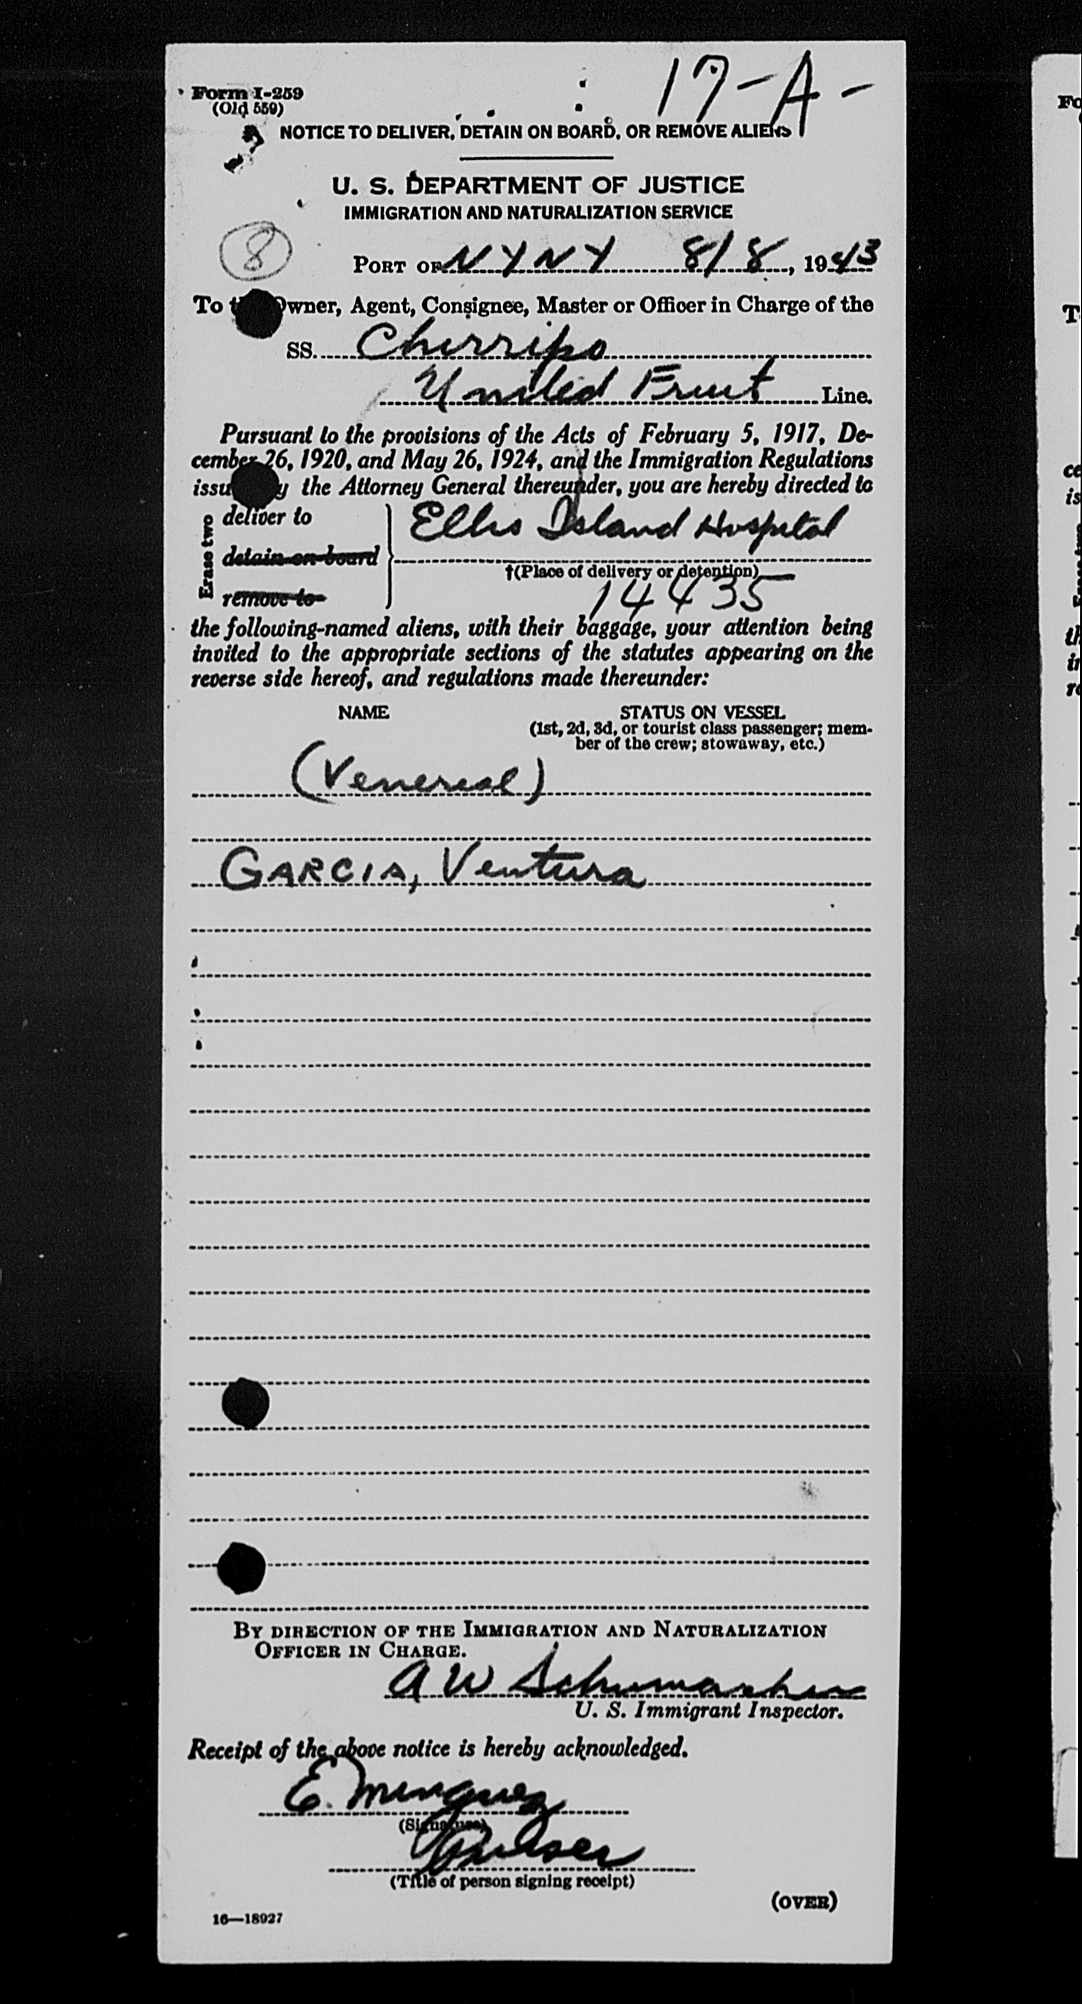 17-A-
Form I-259
(Old 559)
NOTICE TO DELIVER, DETAIN ON BOARD, OR REMOVE ALIENS
U. S. DEPARTMENT OF JUSTICE
IMMIGRATION AND NATURALIZATION SERVICE
8
PORT OF NYNY 8/8, 1943
To Owner, Agent, Consignee, Master or Officer in Charge of the
SS. Chirripo
United Fruit Line.
Pursuant to the provisions of the Acts of February 5, 1917, De-
cember 26, 1920, and May 26, 1924, and the Immigration Regulations
issu y the Attorney General thereunder, you are hereby directed to
Erase two
deliver to
detain on board
remove to
Ellis Island Hospital
†(Place of delivery or detention)
14435
the following-named aliens, with their baggage, your attention being
invited to the appropriate sections of the statutes appearing on the
reverse side hereof, and regulations made thereunder:
NAME STATUS ON VESSEL
(1st, 2d, 3d, or tourist class passenger; mem-
ber of the crew; stowaway, etc.)
(Venereal)
GARCIA, Ventura
BY DIRECTION OF THE IMMIGRATION AND NATURALIZATION
OFFICER IN CHARGE.
A W Schumacher
U. S. Immigrant Inspector.
Receipt of the above notice is hereby acknowledged.
E. Minguez
(Signature)
Purser
(Title of person signing receipt)
(OVER)
16—18927